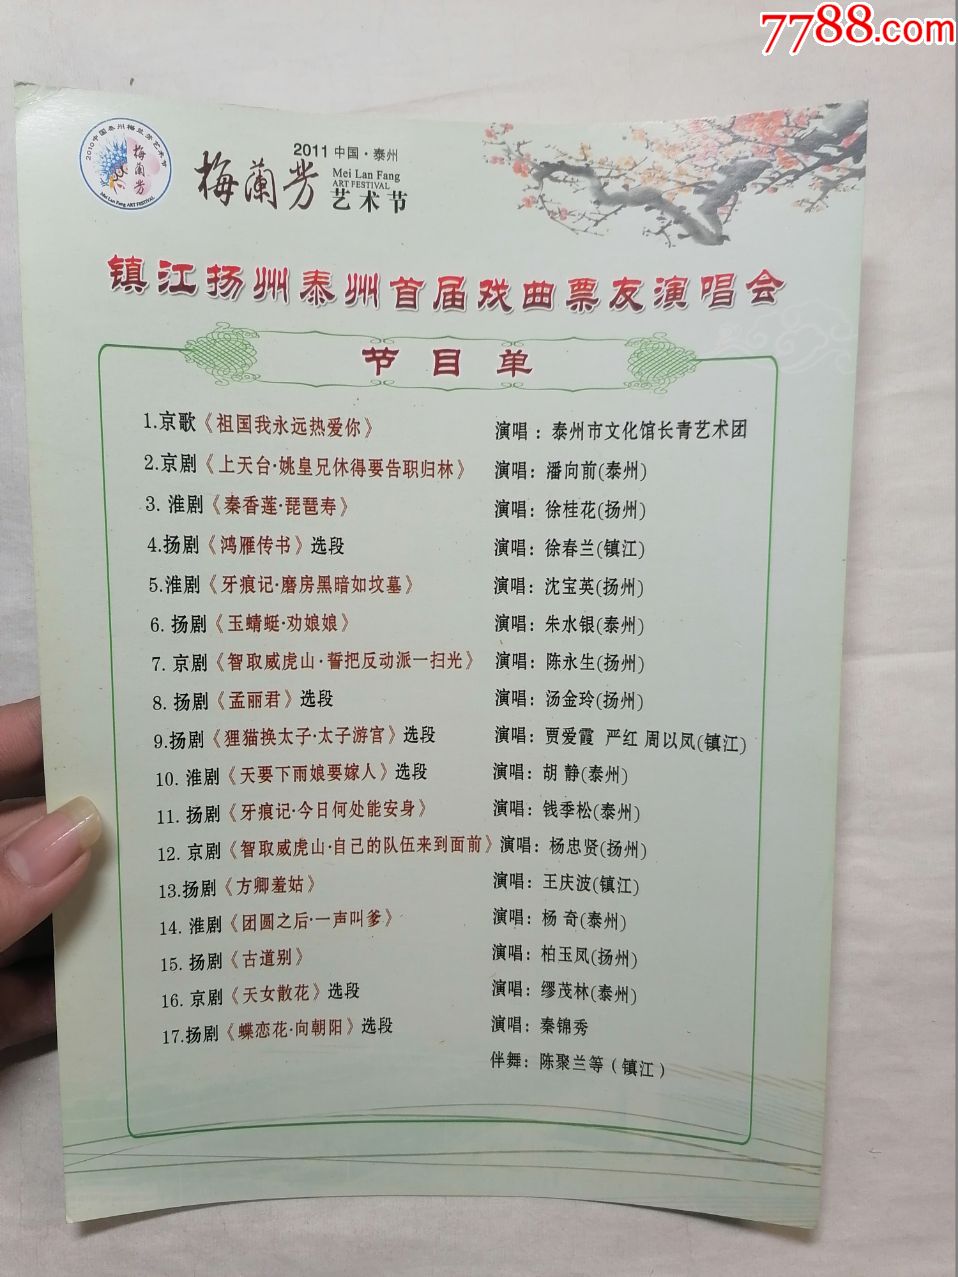 7788.com
2010中国泰州梅兰芳艺术节
梅兰芳
Mei Lan Fang ART FESTIVAL
梅蘭芳
2011 中国·泰州
Mei Lan Fang
ART FESTIVAL
艺术节
镇江扬州泰州首届戏曲票友演唱会
节目单
1.京歌《祖国我永远热爱你》 演唱：泰州市文化馆长青艺术团
2.京剧《上天台·姚皇兄休得要告职归林》 演唱：潘向前(泰州)
3. 淮剧《秦香莲·琵琶寿》 演唱：徐桂花(扬州)
4.扬剧《鸿雁传书》选段 演唱：徐春兰(镇江)
5.淮剧《牙痕记·磨房黑暗如坟墓》 演唱：沈宝英(扬州)
6. 扬剧《玉蜻蜓·劝娘娘》 演唱：朱水银(泰州)
7. 京剧《智取威虎山·誓把反动派一扫光》 演唱：陈永生(扬州)
8. 扬剧《孟丽君》选段 演唱：汤金玲(扬州)
9.扬剧《狸猫换太子·太子游宫》选段 演唱：贾爱霞 严红 周以凤(镇江)
10. 淮剧《天要下雨娘要嫁人》选段 演唱：胡 静(泰州)
11. 扬剧《牙痕记·今日何处能安身》 演唱：钱季松(泰州)
12. 京剧《智取威虎山·自己的队伍来到面前》演唱：杨忠贤(扬州)
13.扬剧《方卿羞姑》 演唱：王庆波(镇江)
14. 淮剧《团圆之后·一声叫爹》 演唱：杨 奇(泰州)
15. 扬剧《古道别》 演唱：柏玉凤(扬州)
16. 京剧《天女散花》选段 演唱：缪茂林(泰州)
17.扬剧《蝶恋花·向朝阳》选段 演唱：秦锦秀
伴舞：陈聚兰等（镇江）